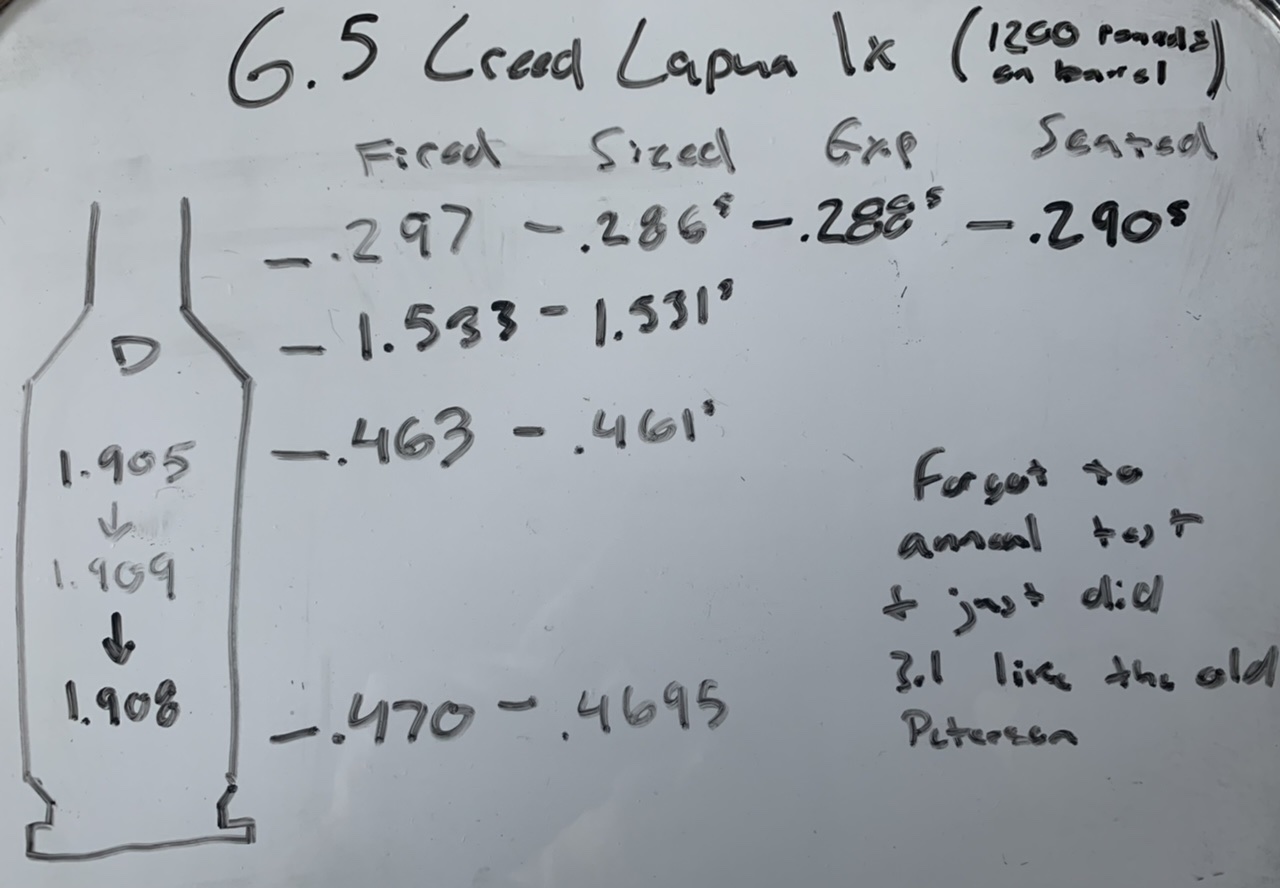 6.5 Creed Lapua 1x (1200 rounds on barrel)
Fired Sized Exp Seated
- .297 - .286⁵ - .288⁵ - .290⁵
- 1.533 - 1.531⁵
D
- .463 - .461⁵
1.905
↓
1.909
↓
1.908
- .470 - .4695
Forgot to
anneal test
+ just did
3.1 like the old
Peterson